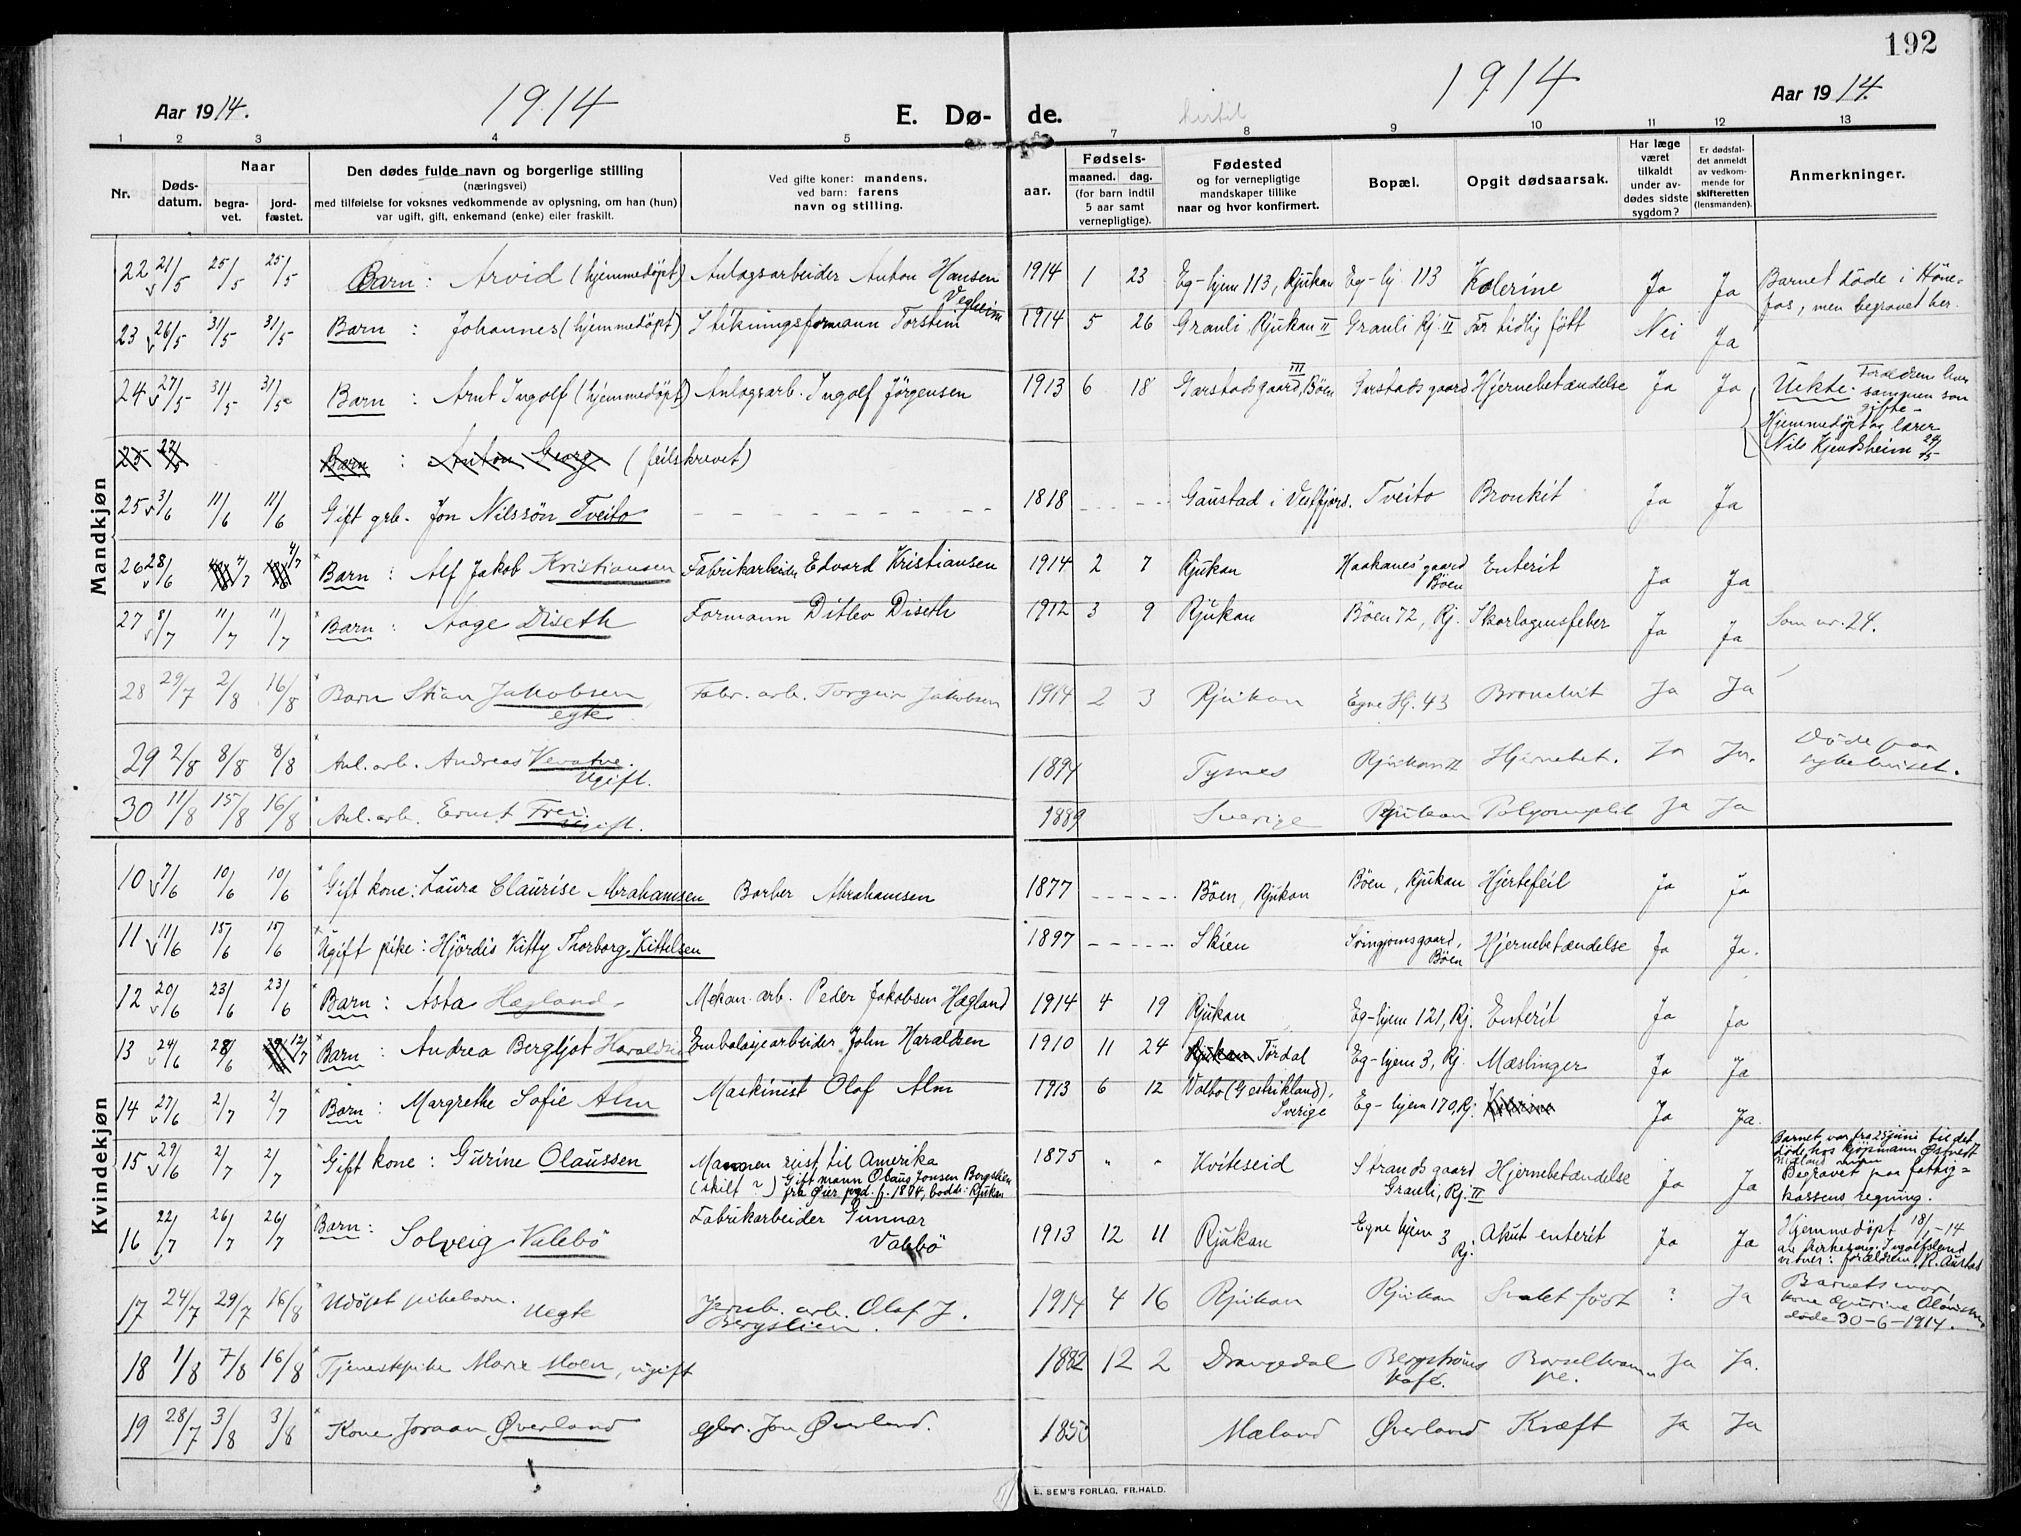 192
Aar 1914. 1914 E. Dø- de. 1914 Aar 1914.
1 2 3 4 5 6 7 8 9 10 11 12 13
Nr. Døds-datum. Naar begra-vet. jord-fæstet. Den dødes fulde navn og borgerlige stilling (næringsvei) med tilføielse for voksnes vedkommende av oplysning, om han (hun) var ugift, gift, enkemand (enke) eller fraskilt. Ved gifte koner: mandens. ved barn: farens navn og stilling. aar. Fødsels- maaned. dag. (for barn indtil 5 aar samt vernepligtige). Fødested og for vernepligtige mandskaper tillike naar og hvor konfirmert. Bopæl. Opgit dødsaarsak. Har læge været tilkaldt under av-dødes sidste sygdom? Er dødsfal-det anmeldt av vedkom-mende for skifteretten (lensmanden). Anmerkninger.
Mandkjøn
22 21/5 25/5 25/5 Barn: Arvid (hjemmedöpt) Anlagsarbeider Anton Hansen 1914 1 23 Eg-hjem 113, Rjukan Eg-hj. 113 Kolerine Ja Ja Barnet döde i Höne-fos, men begravet her.
23 26/5 31/5 31/5 Barn: Johannes (hjemmedöpt) Stikningsformann Torstein Vegheim 1914 5 26 Grauli, Rjukan II Grauli Rj. II For tidlig fött Nei Ja
24 27/5 31/5 31/5 Barn: Arnt Ingolf (hjemmedöpt) Anlagsarb. Ingolf Jörgensen 1913 6 18 Garstadsgaard, Böen III Garstadsgaard Hjernebetændelse Ja Ja Uekte. Forældrene bor sammen som gifte- Hjemmedöpt av lærer Nils Kjendsheim
25 Barn: Anton Georg (feilskrevet)
25 3/6 11/6 11/6 Gift grb. Jon Nilssön Tveito 1818 Gaustad i Vestfjord. Tveito Bronkit Ja Ja
26 28/6 4/7 4/7 Barn: Alf Jakob Kristiansen Fabrikarbeider Edvard Kristiansen 1914 2 7 Rjukan Haakanes'gaard Böen Enterit Ja Ja
27 8/7 11/7 11/7 Barn: Aage Diseth Formann Ditlev Diseth 1912 3 9 Rjukan Böen 72, Rj. Skarlagensfeber Ja Ja Som nr. 24.
28 29/7 2/8 16/8 Barn Stian Jakobsen egte Fabr. arb. Torgeir Jakobsen 1914 2 3 Rjukan Egne Hj. 43 Bronchit Ja Ja
29 2/8 8/8 8/8 Anl. arb. Andreas Ugift. 1894 Tysnes Rjukan II Hjernebet. Ja Ja. Döde paa sykehuset.
30 11/8 15/8 16/8 Anl. arb. Ernst Frei. Ugift. 1889 Sverige Rjukan Ja Ja
Kvindekjøn
10 7/6 10/6 10/6 Gift kone: Laura Claurise Abrahamsen Barber Abrahamsen 1877 Böen, Rjukan Böen, Rjukan Hjertefeil Ja Ja
11 11/6 15/6 15/6 Ugift pike: Hjördis Kitty Thorborg Kittelsen 1897 Skien Böen Hjernebetændelse Ja Ja.
12 20/6 23/6 23/6 Barn: Asta Hægland Mekan. arb. Peder Jakobsen Hægland 1914 4 19 Rjukan Eg-hjem 121, Rj. Enterit Ja Ja
13 24/6 28/6 12/7 Barn: Andrea Bergljot Haraldsen Embalagearbeider John Haraldsen 1910 11 24 Rjukan Tördal Eg-hjem 3, Rj. Mæslinger Ja Ja
14 27/6 2/7 2/7 Barn: Margrethe Sofie Alm Maskinist Olaf Alm 1913 6 12 Valbo (Gestrikland), Sverige Eg-hjem 170, Rj. Ja Ja.
15 29/6 2/7 2/7 Gift kone: Gurine Olaussen Mannen reist til Amerika (skilt?) Gift mann Olaus Jonsen Bergslien fra Öier pgd. f. 1874, bodde: Rjukan 1875 " " Kviteseid Strandsgaard Grauli, Rj. II Hjernebetændelse Ja Ja Barnet var fra 25 juni til det döde hos kjöpmann Östvedt Begravet paa fattig-kassens regning.
16 22/7 26/7 26/7 Barn: Solveig Valebö Fabrikarbeider Gunnar Valebö 1913 12 11 Rjukan Egne hjem 3 Rj. Akut enterit Ja Ja Hjemmedöpt 18/1-14 av kirkesang. Ingolfsland vitner: forældrene, R. Austad
17 24/7 29/7 16/8 Udöpt pikebarn. Uegte Jernb. arb. Olaf J. Bergslien. 1914 4 16 Rjukan Rjukan Svakt föst ? Ja Barnets mor, kone Gurine Olaussen döde 30-6-1914.
18 1/8 7/8 16/8 Tjenestepike Marie Moen, ugift 1882 12 2 Drangedal Bergströms kafé. Barselkram-pe. Ja Ja.
19 28/7 3/8 3/8 Kone Joraan Øverland gbr. Jon Øverland. 1850 Mæland Øverland Kræft Ja Ja
E. SEM'S FORLAG, FR.HALD.